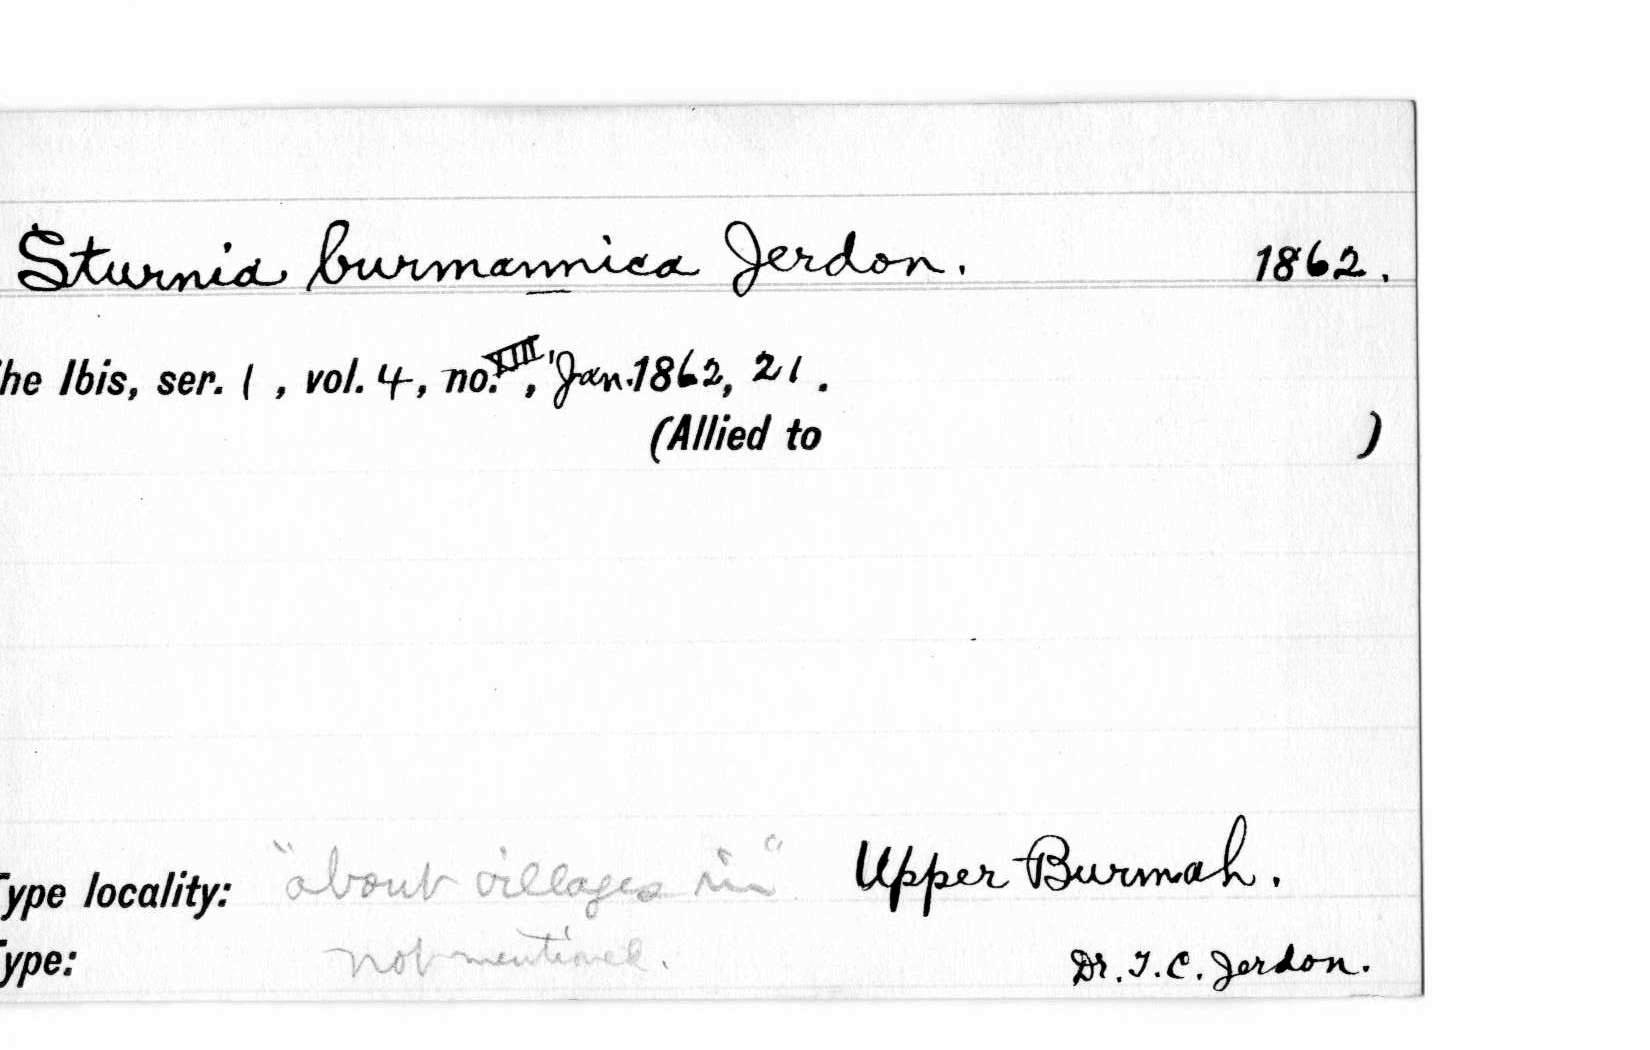 Sturnia burmannica Jerdon. 1862.
he Ibis, ser. 1, vol. 4, no. XIII, Jan. 1862, 21.
(Allied to )
Type locality: "about villages in" Upper Burmah.
Type: not mentioned. Dr. T. C. Jerdon.